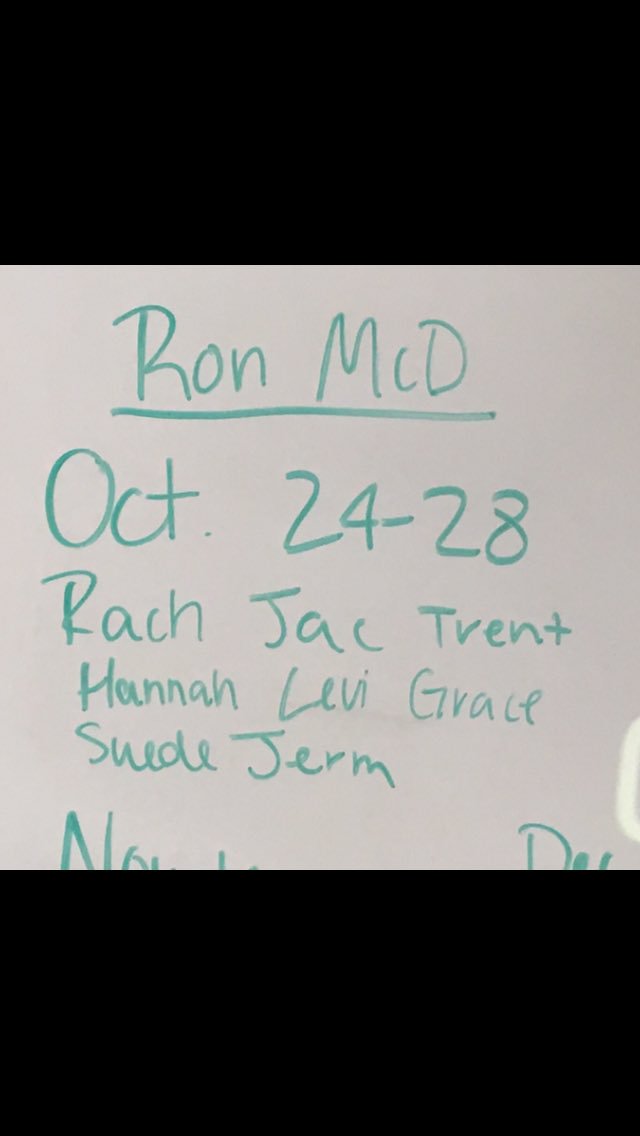 Ron McD
Oct. 24-28
Rach Jac Trent
Hannah Levi Grace
Suede Jerm